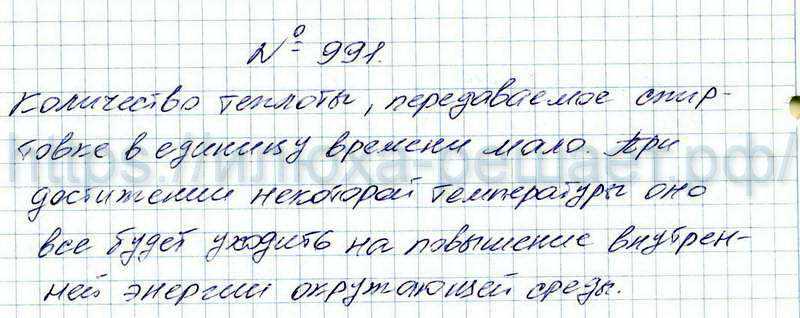 № 991.
Количество теплоты, передаваемое спир-
товке в единицу времени мало. При
достижении некоторой температуры оно
все будет уходить на повышение внутрен-
ней энергии окружающей среды.